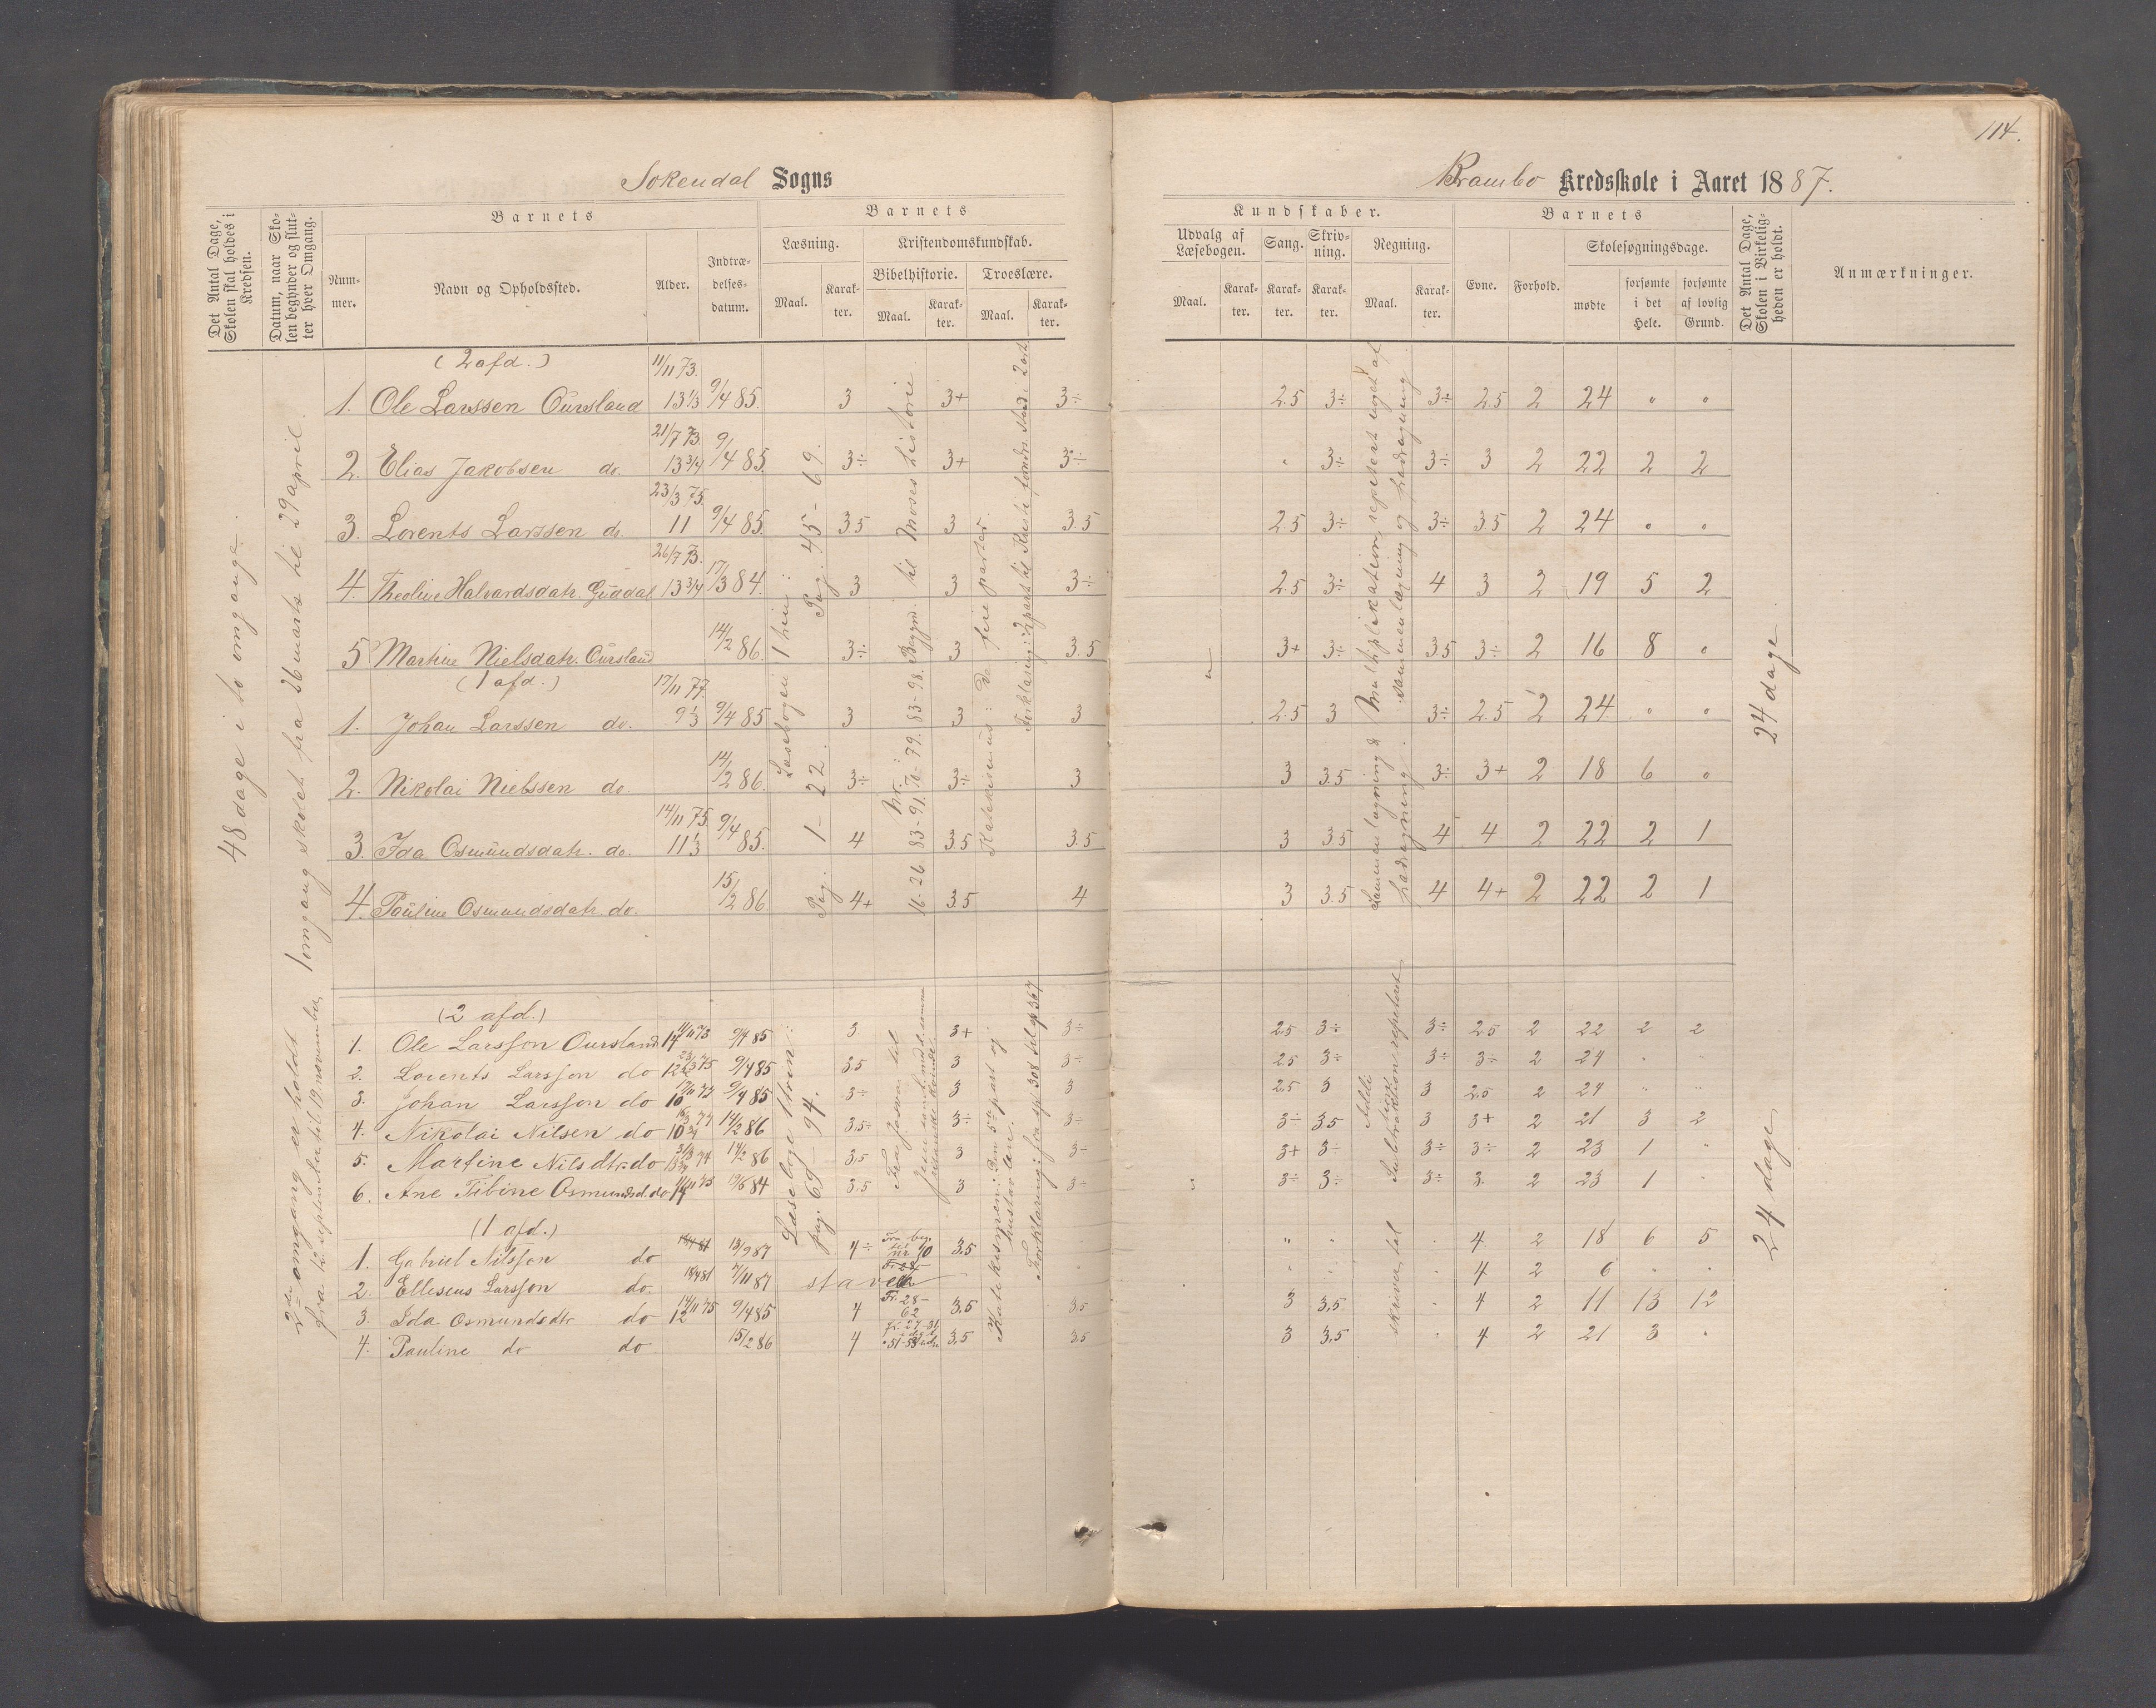 114.
Sokendal Sogns
Brambo Kredsskole i Aaret 1887.
Det Antal Dage, Skolen skal holdes i Kredsen.
Datum, naar Skolen begynder og slutter hver Omgang.
Barnets
Nummer.
Navn og Opholdssted.
Alder.
Indtrædelsesdatum.
Barnets
Læsning.
Maal.
Karakter.
Kristendomskundskab.
Bibelhistorie.
Maal.
Karakter.
Troeslære.
Maal.
Karakter.
Kundskaber.
Udvalg af Læsebogen.
Maal.
Karakter.
Sang.
Karakter.
Skrivning.
Karakter.
Regning.
Maal.
Karakter.
Barnets
Evne.
Forhold.
Skolesøgningsdage.
mødte
forsømte i det Hele.
forsømte af lovlig Grund.
Det Antal Dage, Skolen i Virkeligheden er holdt.
Anmærkninger.
48 dage i to omgange.
1 omgang skoled fra 26 marts til 29 april.
(2 afd.)
1. Ole Larssen Oursland 11/11 73. 13 1/3 9/4 85. 3 3+ 3÷ 2.5 3÷ 3÷ 2.5 2 24 " "
2. Elias Jakobsen do. 21/7 73. 13 3/4 9/4 85. 3÷ 3+ 3÷ " 3÷ 3÷ 3 2 22 2 2
3. Lorents Larssen do. 23/3 75. 11 9/4 85. 3.5 3 3.5 2.5 3÷ 3÷ 3.5 2 24 " "
4. Theoline Halvardsdatr. Guddal 26/7 73. 13 3/4 17/3 84. 3 3 3÷ 2.5 3÷ 4 3 2 19 5 2
5 Martine Nielsdatr. Oursland 14/2 86. 3÷ 3 3.5 3+ 3÷ 3.5 3÷ 2 16 8 "
(1 afd.)
1. Johan Larssen do. 17/11 77. 9 1/3 9/4 85 3 3 3 2.5 3 3÷ 2.5 2 24 " "
2. Nikolai Nielssen do. 14/2 86. 3÷ 3÷ 3 3 3.5 3÷ 3+ 2 18 6 "
3. Ida Osmundsdatr. do. 14/11 75. 11 1/3 9/4 85. 4 3.5 3.5 3 3.5 4 4 2 22 2 1
4. Pauline Osmundsdatr. do. 15/2 86. 4+ 3.5 4 3 3.5 4 4+ 2 22 2 1
Læsebogen 1 trin:
Pag. 1 - 22. Pag. 45 - 69.
Nr: 16-26 83-91, 70-79. 83-98. Beggn. til Moses historie.
Katekismus: De fire parter.
Sammenlægning & fradragning.
Multiplikation, repetert noget af sammenlægning og fradragning.
24 dage
2den omgang er holdt
fra 12. september til 19 november
(2 afd.)
1. Ole Larsson Oursland 14 11/11 73 9/4 85 3 3+ 3÷ 2.5 3÷ 3÷ 2.5 2 22 2 2
2. Lorents Larsson do 12 23/3 75 9/4 85 3.5 3 3÷ 2.5 3÷ 3÷ 3÷ 2 24 " "
3. Johan Larsson do 10 9/4 85 3÷ 3 3 2.5 3 3 2.5 2 24 " "
4. Nikolai Nilsen do 10 14/2 86 3.5÷ 3÷ 3÷ 3÷ 3.5 3 3+ 2 21 3 2
5. Martine Nilsdtr. do 14/2 86 3.5 3 3÷ 3+ 3÷ 3÷ 3÷ 2 23 1 "
6. Ane Tibine Osmundsd. do 3.5 3 3÷ 3÷ 3÷ 3÷ 3. 2 23 1 "
(1 afd.)
1. Gabriel Nilsson do 13/9 87 4÷ 3.5 " " " 4 2 18 6 5
2. Elliseus Larsson do. 18/4 81 7/11 87 staver " " " 4 2 6 " "
3. Ida Osmundsdtr do 12 14/11 75 9/4 85 4 Fr. 28-62 3.5 3.5 3 3.5 " 4 2 11 13 12
4. Pauline do do 15/2 86 4 3.5 3.5 3 3.5 " 4 2 21 3 "
Læseboge 1 trin:
pag. 69 - 94.
Katekismen: Den 5te part og hustavlen.
Forklaring: fra sp. 308 til sp. 367
Addi
Subtraktion repetert
skriver tal
24 dage